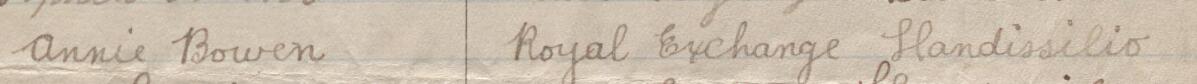 Annie Bowen Royal Exchange Llandissilio